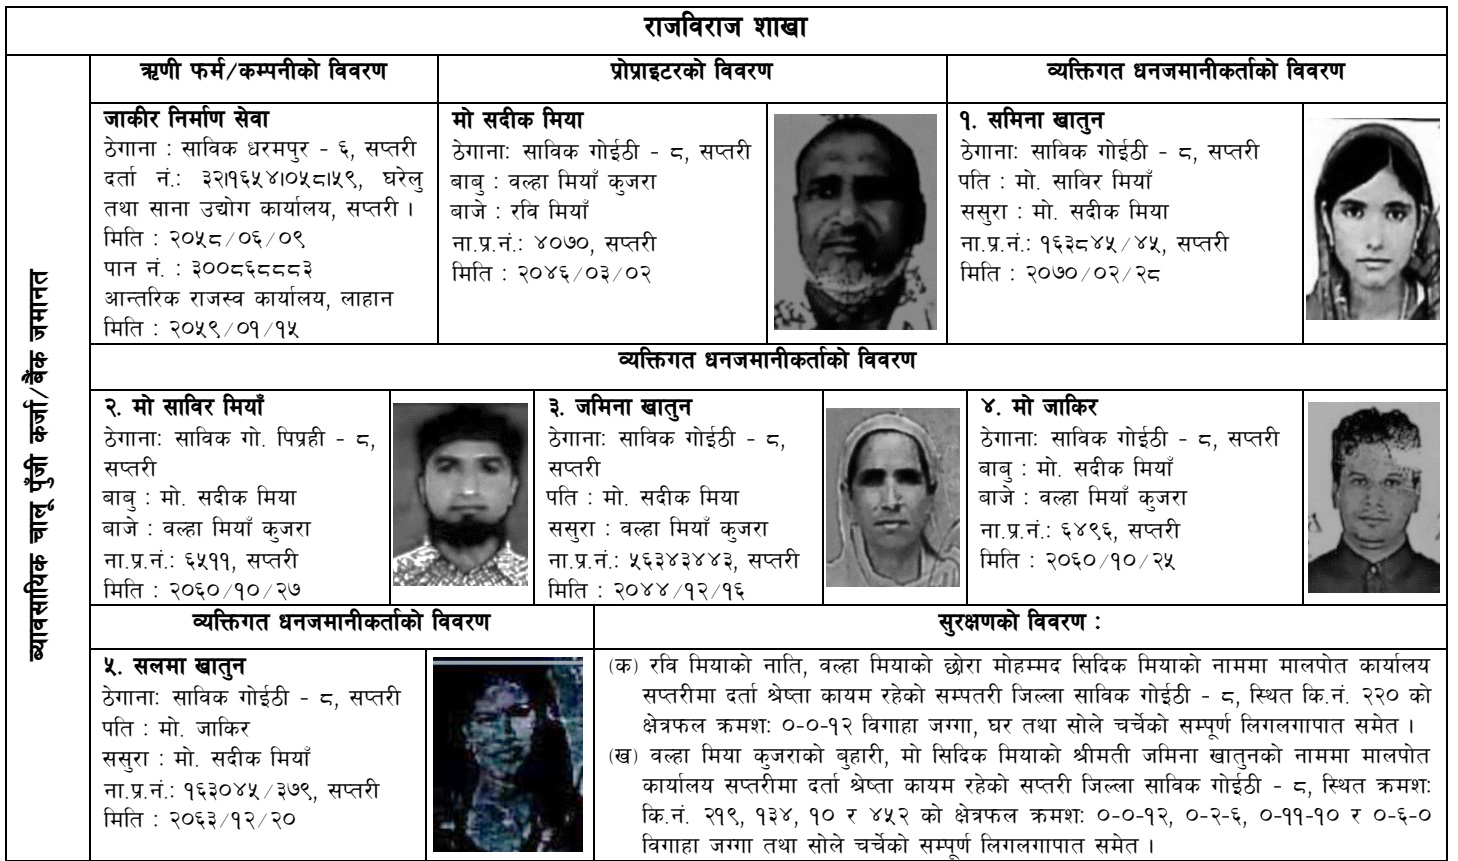 राजविराज शाखा
ब्यावसायिक चालू पुँजी कर्जा/बैंक जमानत
ऋणी फर्म/कम्पनीको विवरण
प्रोप्राइटरको विवरण
व्यक्तिगत धनजमानीकर्ताको विवरण
जाकीर निर्माण सेवा
ठेगाना : साविक धरमपुर - ६, सप्तरी
दर्ता नं.: ३२।१६५४।०५८।५९, घरेलु
तथा साना उद्योग कार्यालय, सप्तरी ।
मिति : २०५८/०६/०९
पान नं. : ३००८६८८८३
आन्तरिक राजस्व कार्यालय, लाहान
मिति : २०५९/०१/१५
मो सदीक मिया
ठेगानाः साविक गोईठी - ८, सप्तरी
बाबु : वल्हा मियाँ कुजरा
बाजे : रवि मियाँ
ना.प्र.नं.: ४०७०, सप्तरी
मिति : २०४६/०३/०२
१. समिना खातुन
ठेगानाः साविक गोईठी - ८, सप्तरी
पति : मो. साविर मियाँ
ससुरा : मो. सदीक मिया
ना.प्र.नं.: १६३८४५/४५, सप्तरी
मिति : २०७०/०२/२८
व्यक्तिगत धनजमानीकर्ताको विवरण
२. मो साविर मियाँ
ठेगानाः साविक गो. पिप्रही - ८,
सप्तरी
बाबु : मो. सदीक मिया
बाजे : वल्हा मियाँ कुजरा
ना.प्र.नं.: ६५११, सप्तरी
मिति : २०६०/१०/२७
३. जमिना खातुन
ठेगानाः साविक गोईठी - ८,
सप्तरी
पति : मो. सदीक मिया
ससुरा : वल्हा मियाँ कुजरा
ना.प्र.नं.: ५६३४३४४३, सप्तरी
मिति : २०४४/१२/१६
४. मो जाकिर
ठेगानाः साविक गोईठी - ८, सप्तरी
बाबु : मो. सदीक मियाँ
बाजे : वल्हा मियाँ कुजरा
ना.प्र.नं.: ६४९६, सप्तरी
मिति : २०६०/१०/२५
व्यक्तिगत धनजमानीकर्ताको विवरण
सुरक्षणको विवरण :
५. सलमा खातुन
ठेगानाः साविक गोईठी - ८, सप्तरी
पति : मो. जाकिर
ससुरा : मो. सदीक मियाँ
ना.प्र.नं.: १६३०४५/३७९, सप्तरी
मिति : २०६३/१२/२०
(क) रवि मियाको नाति, वल्हा मियाको छोरा मोहम्मद सिदिक मियाको नाममा मालपोत कार्यालय
सप्तरीमा दर्ता श्रेष्ता कायम रहेको सम्पतरी जिल्ला साविक गोईठी - ८, स्थित कि.नं. २२० को
क्षेत्रफल क्रमशः ०-०-१२ विगाहा जग्गा, घर तथा सोले चर्चेको सम्पूर्ण लिगलगापात समेत ।
(ख) वल्हा मिया कुजराको बुहारी, मो सिदिक मियाको श्रीमती जमिना खातुनको नाममा मालपोत
कार्यालय सप्तरीमा दर्ता श्रेष्ता कायम रहेको सप्तरी जिल्ला साविक गोईठी - ८, स्थित क्रमशः
कि.नं. २१९, १३४, १० र ४५२ को क्षेत्रफल क्रमशः ०-०-१२, ०-२-६, ०-११-१० र ०-६-०
विगाहा जग्गा तथा सोले चर्चेको सम्पूर्ण लिगलगापात समेत ।